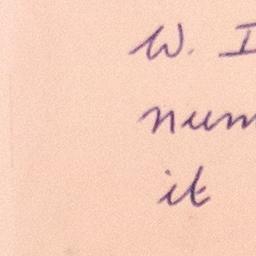 W. I
num
it